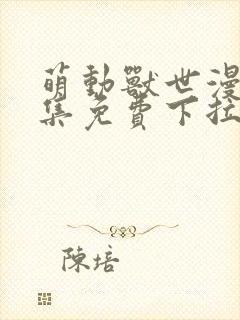 萌動獸世漫
集免費下拉
陳培